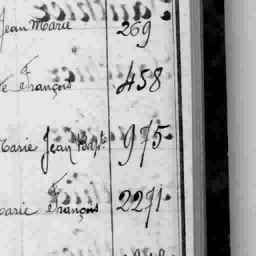 Jean Marie 269
François 458
Marie Jean Bapte 975
Marie François 2271